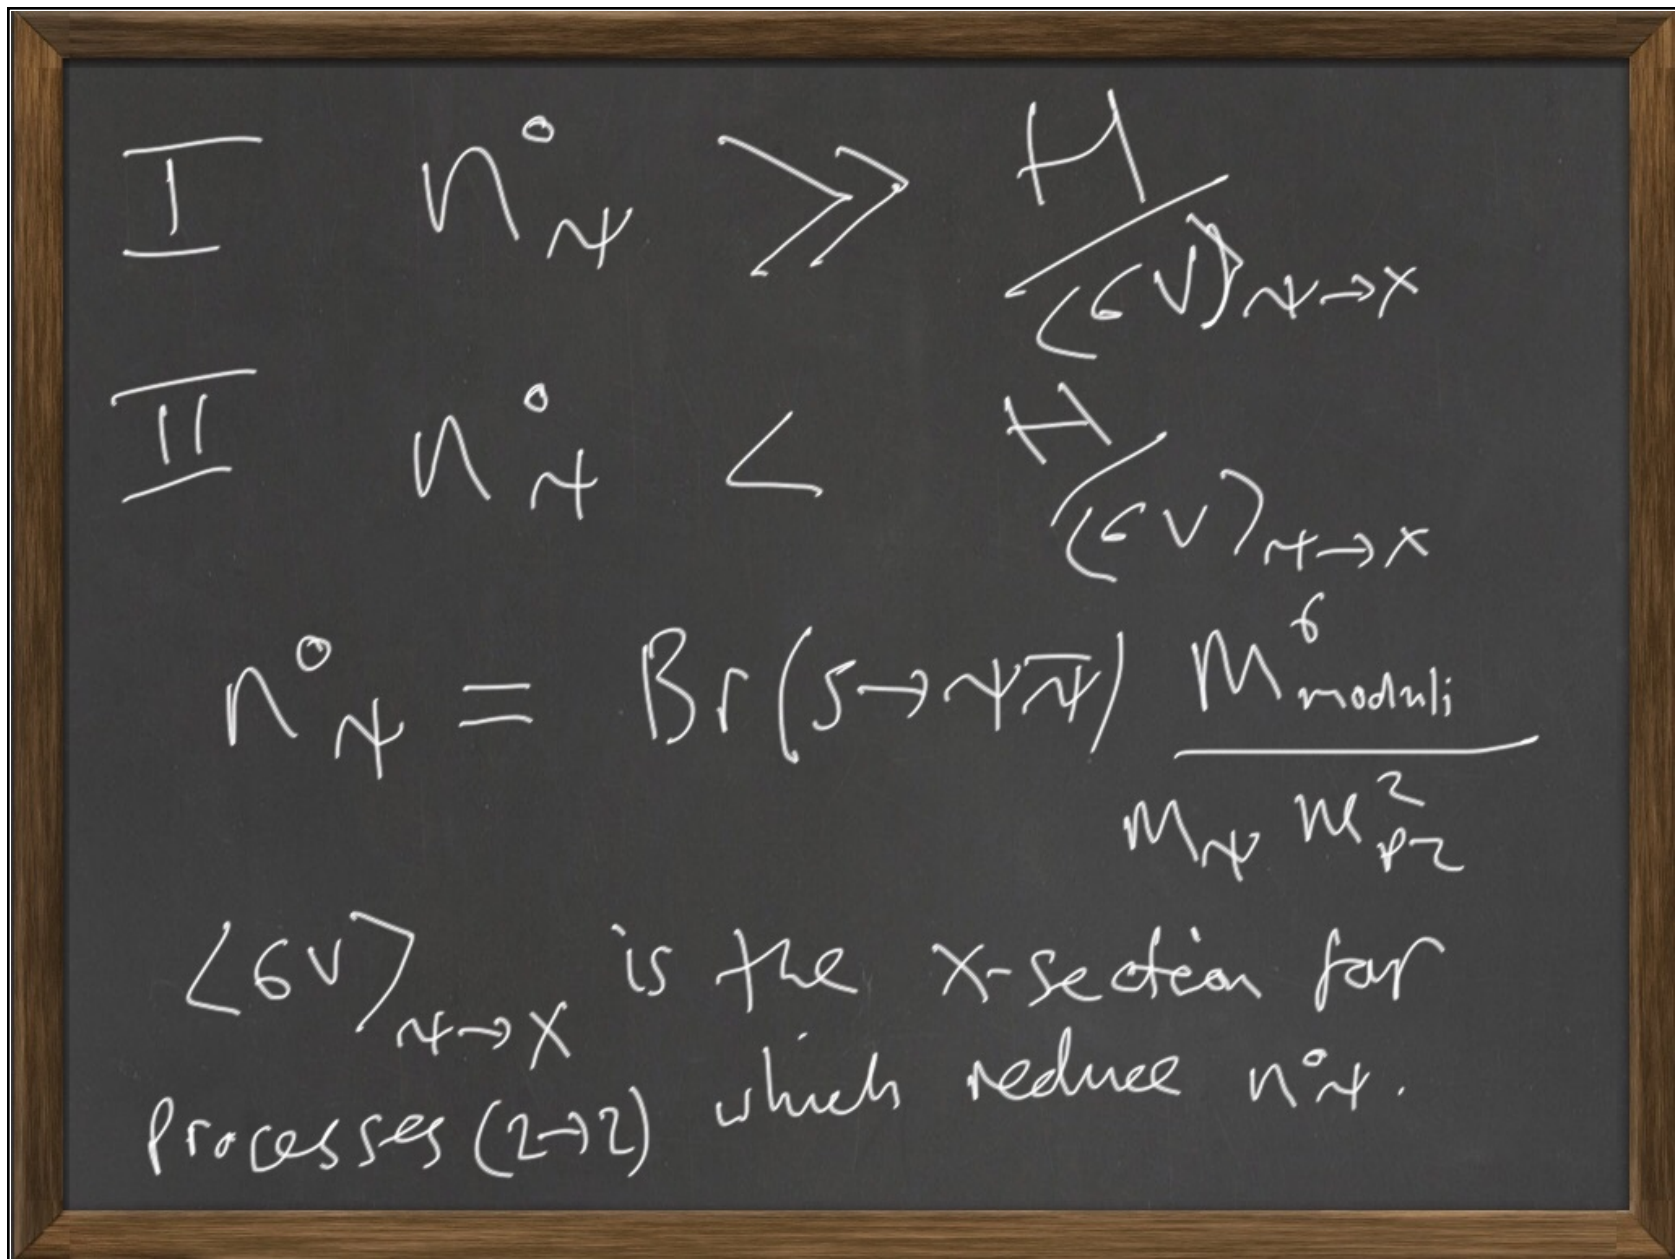 I n°ψ ≫ H/⟨σv⟩ψ→X
II n°ψ < H/⟨σv⟩ψ→X
n°ψ = Br(S→ψψ̄) m⁶moduli / mψ m²pl
⟨σv⟩ψ→X is the x-section for
processes (2→2) which reduce n°ψ.